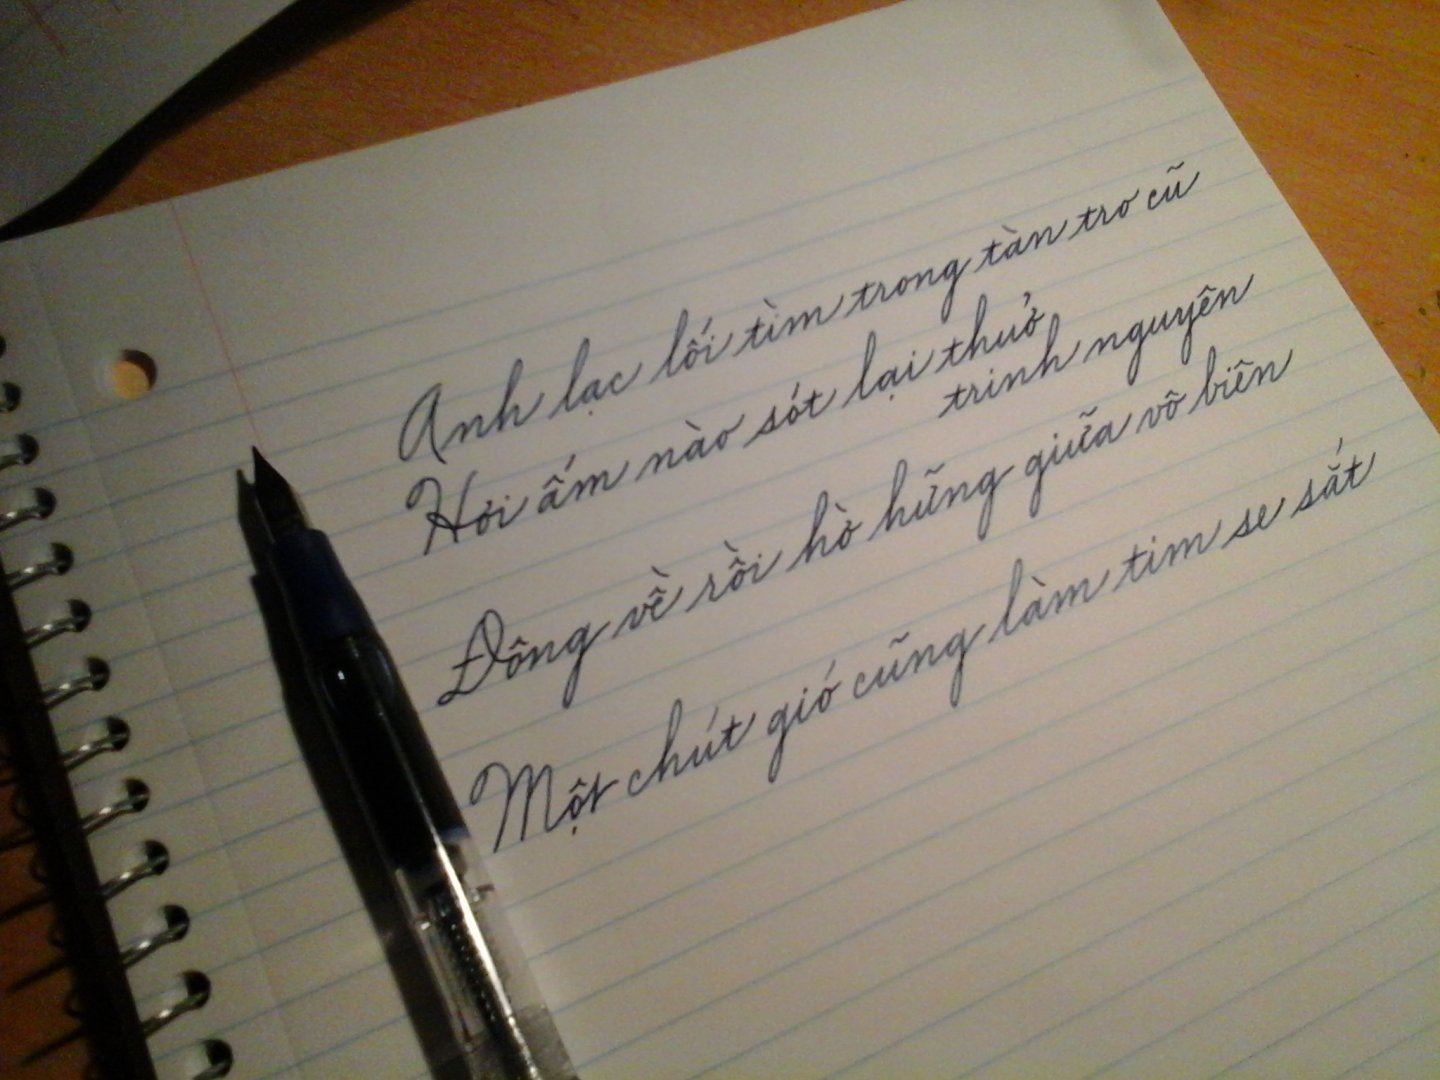 Anh lạc lối tìm trong tàn tro cũ
Hơi ấm nào sót lại thuở
trinh nguyên
Đông về rồi hờ hững giữa vô biên
Một chút gió cũng làm tim se sắt